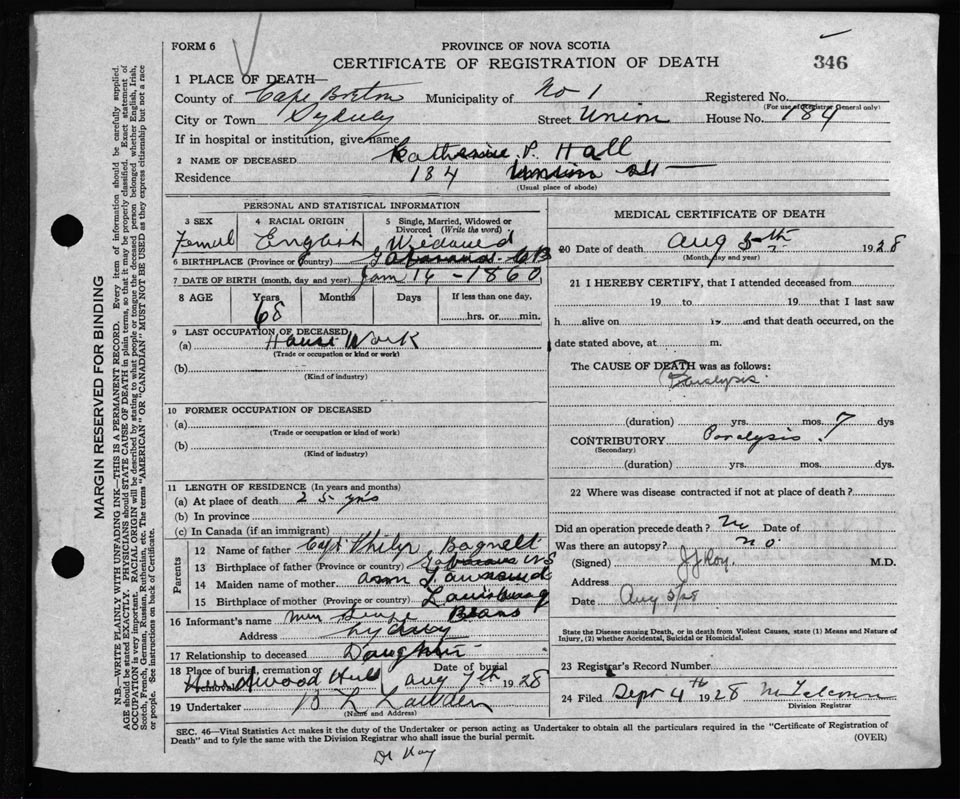 FORM 6
PROVINCE OF NOVA SCOTIA
CERTIFICATE OF REGISTRATION OF DEATH
346
1 PLACE OF DEATH—
County of Cape Breton Municipality of No 1 Registered No.
(For use of Registrar General only)
City or Town Sydney Street Union House No. 184
If in hospital or institution, give name
2 NAME OF DECEASED Katherine P. Hall
Residence 184 Union St
(Usual place of abode)
PERSONAL AND STATISTICAL INFORMATION
3 SEX 4 RACIAL ORIGIN 5 Single, Married, Widowed or Divorced (Write the word)
Femal English Widowed
6 BIRTHPLACE (Province or Country) Gabarus CB
7 DATE OF BIRTH (month, day and year) Jan 14 - 1860
8 AGE Years Months Days If less than one day,
68 hrs. or min.
9 LAST OCCUPATION OF DECEASED
(a) House Work
(Trade or occupation or kind or work)
(b)
(Kind of industry)
10 FORMER OCCUPATION OF DECEASED
(a)
(Trade or occupation or kind of work)
(b)
(Kind of industry)
11 LENGTH OF RESIDENCE (In years and months)
(a) At place of death 25 yrs
(b) In province
(c) In Canada (if an immigrant)
Parents
12 Name of father Capt Philip Bagnell
13 Birthplace of father (Province or country) Gabarus NS
14 Maiden name of mother Ann Townsend
15 Birthplace of mother (Province or country) Louisburg
16 Informant's name Mrs
Address Sydney
17 Relationship to deceased Daughter
18 Place of burial, cremation or removal Hardwood Hill Date of burial Aug 7th 1928
19 Undertaker B L
(Name and Address)
MEDICAL CERTIFICATE OF DEATH
20 Date of death Aug 5th 1928
(Month, day and year)
21 I HEREBY CERTIFY, that I attended deceased from
19 to 19 that I last saw
h alive on 19 and that death occurred, on the
date stated above, at m.
The CAUSE OF DEATH was as follows:
Paralysis
(duration) yrs. mos. 7 dys
CONTRIBUTORY Paralysis
(Secondary)
(duration) yrs. mos. dys.
22 Where was disease contracted if not at place of death?
Did an operation precede death? No Date of
Was there an autopsy? No.
(Signed) J J Roy. M.D.
Address
Date Aug 5/28
State the Disease causing Death, or in death from Violent Causes, state (1) Means and Nature of
Injury, (2) whether Accidental, Suicidal or Homicidal.
23 Registrar's Record Number
24 Filed Sept 4th 1928
Division Registrar
SEC. 46—Vital Statistics Act makes it the duty of the Undertaker or person acting as Undertaker to obtain all the particulars required in the "Certificate of Registration of
Death" and to fyle the same with the Division Registrar who shall issue the burial permit.
(OVER)
MARGIN RESERVED FOR BINDING
N.B.—WRITE PLAINLY WITH UNFADING INK—THIS IS A PERMANENT RECORD. Every item of information should be carefully supplied.
AGE should be stated EXACTLY. PHYSICIANS should STATE CAUSE OF DEATH in plain terms, so that it may be properly classified. Exact statement of
OCCUPATION is very important. RACIAL ORIGIN will be described by stating to what people or tongue the deceased person belonged whether English, Irish,
Scotch, French, German, Russian, Ruthenian, etc. The terms "AMERICAN" OR "CANADIAN" MUST NOT BE USED as they express citizenship but not a race
or people. See instructions on back of Certificate.